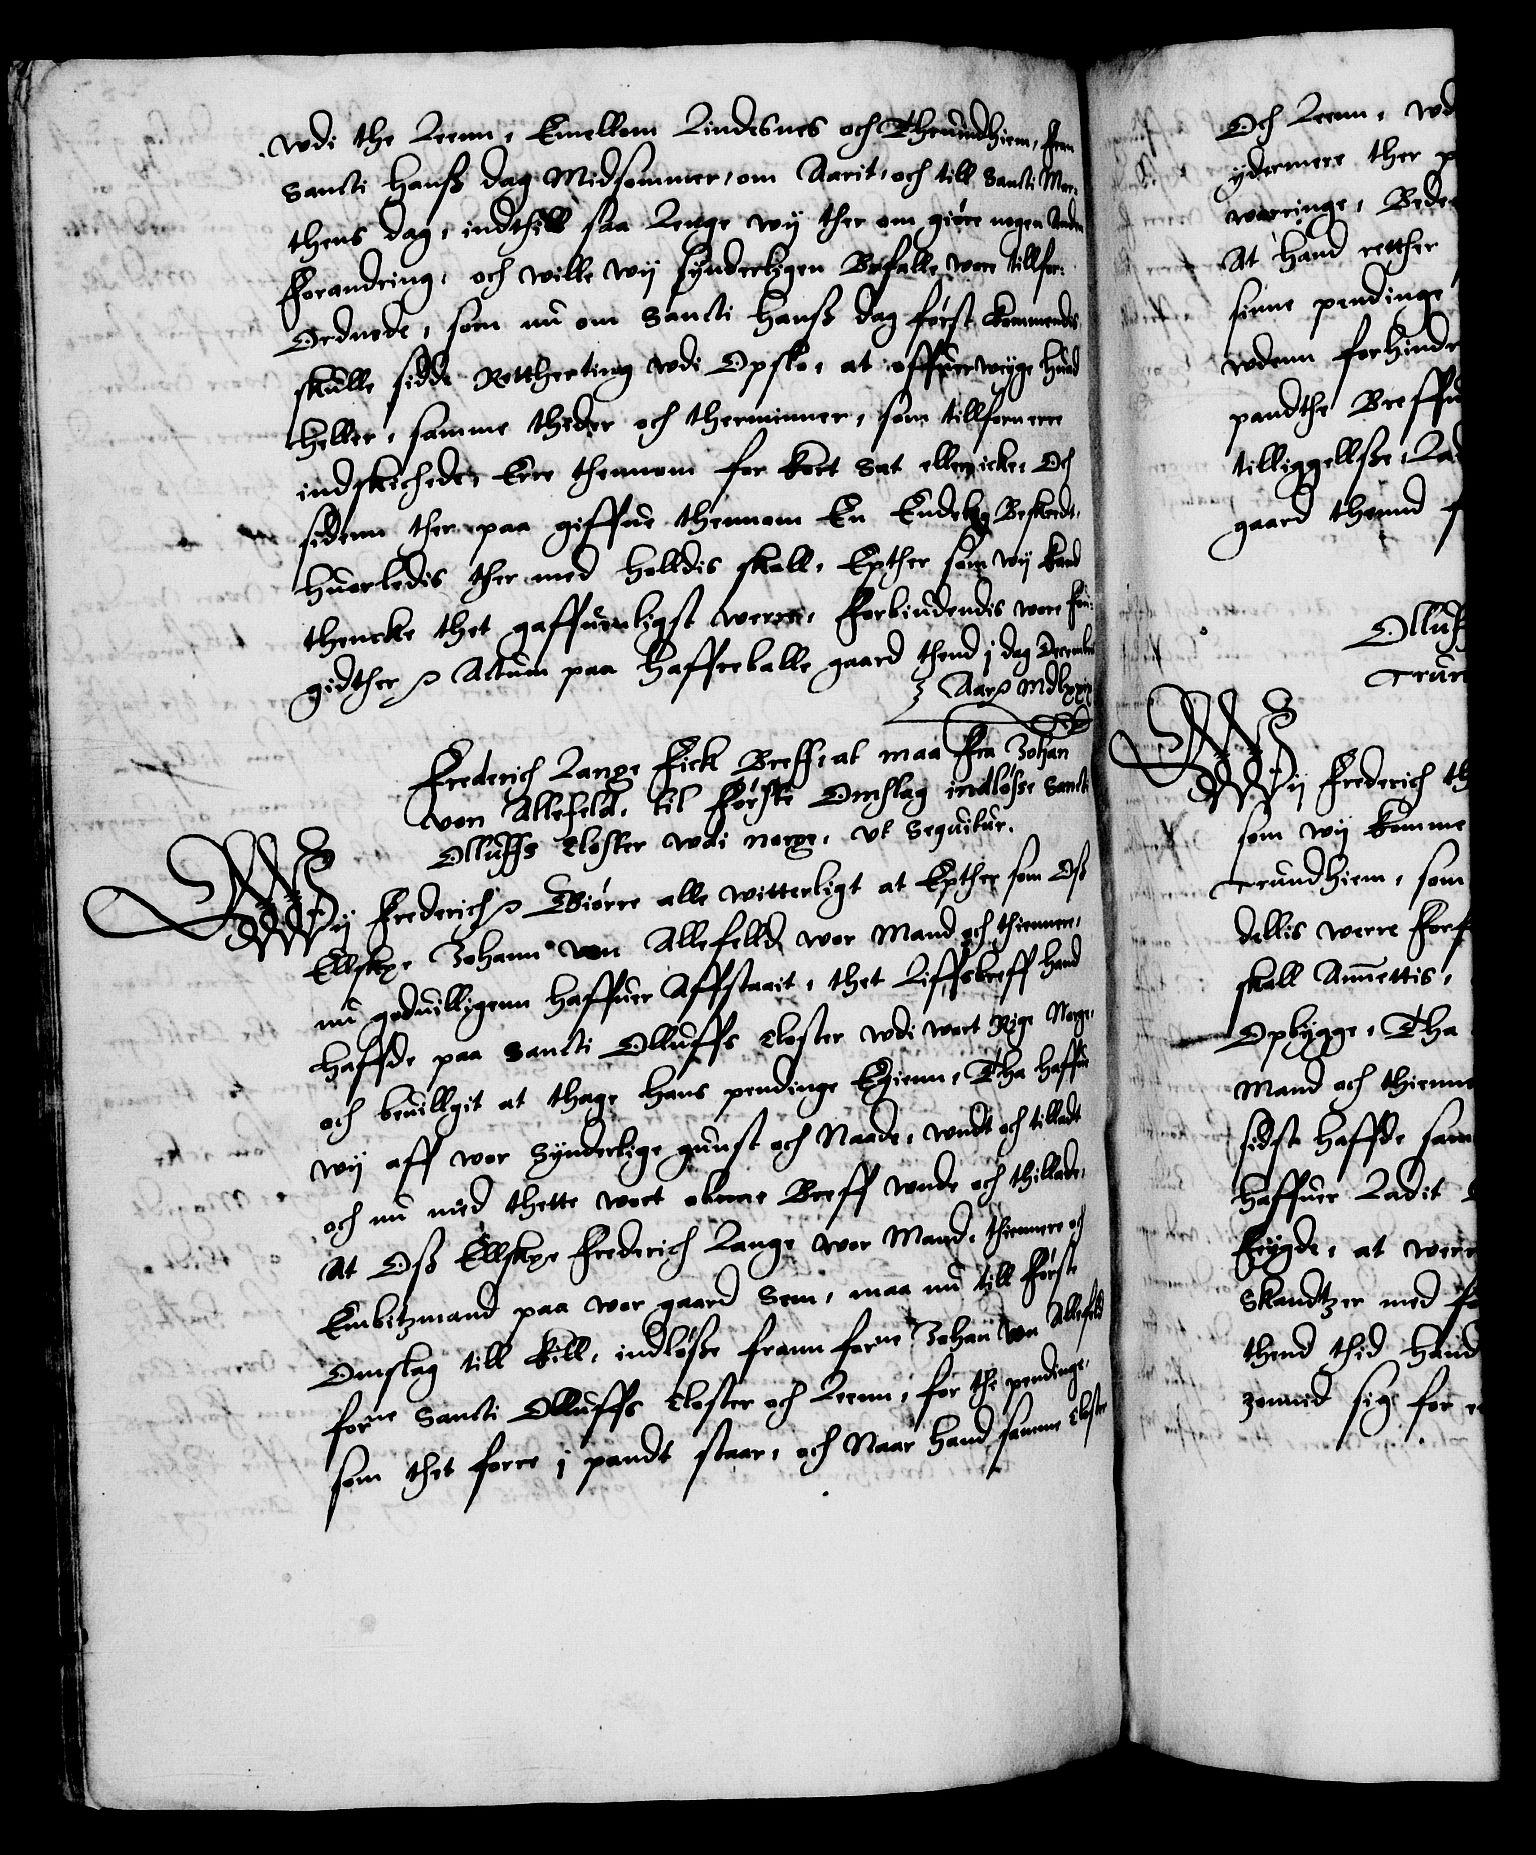 wdi the Leenn, Emellom Lindesnes och Thrundhiem, fran
Sancti Hanß dag Midsommer, om Aarit, och till Sancti Mor-
thens dag, indthill saa Lenge wij ther om giøre nogen Anden
Forandring, och wille wij synderligen Befalle wore tillfor-
Ordnede, som nu om Sancti Hanß dag først kommendis
skulle sidde Retterting wdi Opslo, at offuerweyge huad
heller, samme theder och therminner, som tillfornn erre
indskichede, Erre thennom for kort Sat eller icke, Och
sidenn ther paa giffue thennom En Endelig Beskedt,
huorledis ther med holldis skall, Epther som wij kand
thencke thet gaffuenligst werre, Forbiudendis wore fou-
gidther Actum paa Haffreballe gaard thend j dag Decembris
Aar Mdlxxij
Frederich Lange Fick Breff, at maa Fra Johan
von Allefeld, til Første Omslag indløsse Sancti
Olluffs Closter wdi norge, vt Sequitur.
Wij Frederich Giørre alle witterligt at Epther som Oß
Ellskge Johann von Allefelld wor Mand och thiennere,
nu goduilligenn haffuer Affstaait, thet Liffsbreff hand
haffde paa Sancti Olluffs Closter wdi wort Rige Norge,
och beuillgit at thage hans pendinge Egienn, Tha haffue
wij aff wor Synderlige gunst och Naade, wndt och tilladt
och nu med thette wort obne Breff wnde och thillade,
At Oß Ellskge Frederich Lange wor Mand, thiennere och
Embitzmand paa wor gaard Sem, maa nu till Første
Omslag till Kill, indløsse frann forne Johan von Allefeld
forne Sancti Olluffs Closter och Leenn, for the pendinge,
som thet forre j pandt staar, och Naar hand samme Closter
Och Leenn, wd
ydermere ther p
warringe, Bede
At hand retther
sinne pendinge
wdenn forhindr
pandthe Breffu
tilliggellße, Lad
gaard thennd f
Olluff
Trun
Wij Frederich th
som wij komme
Trundhiem, som
dellis werre Forf
skall Anuettis,
Opbygge, Tha
Mand och thienne
sidste haffde sam
haffuer Ladit
Frygde, at were
Skandtzer med fo
thend thid hand